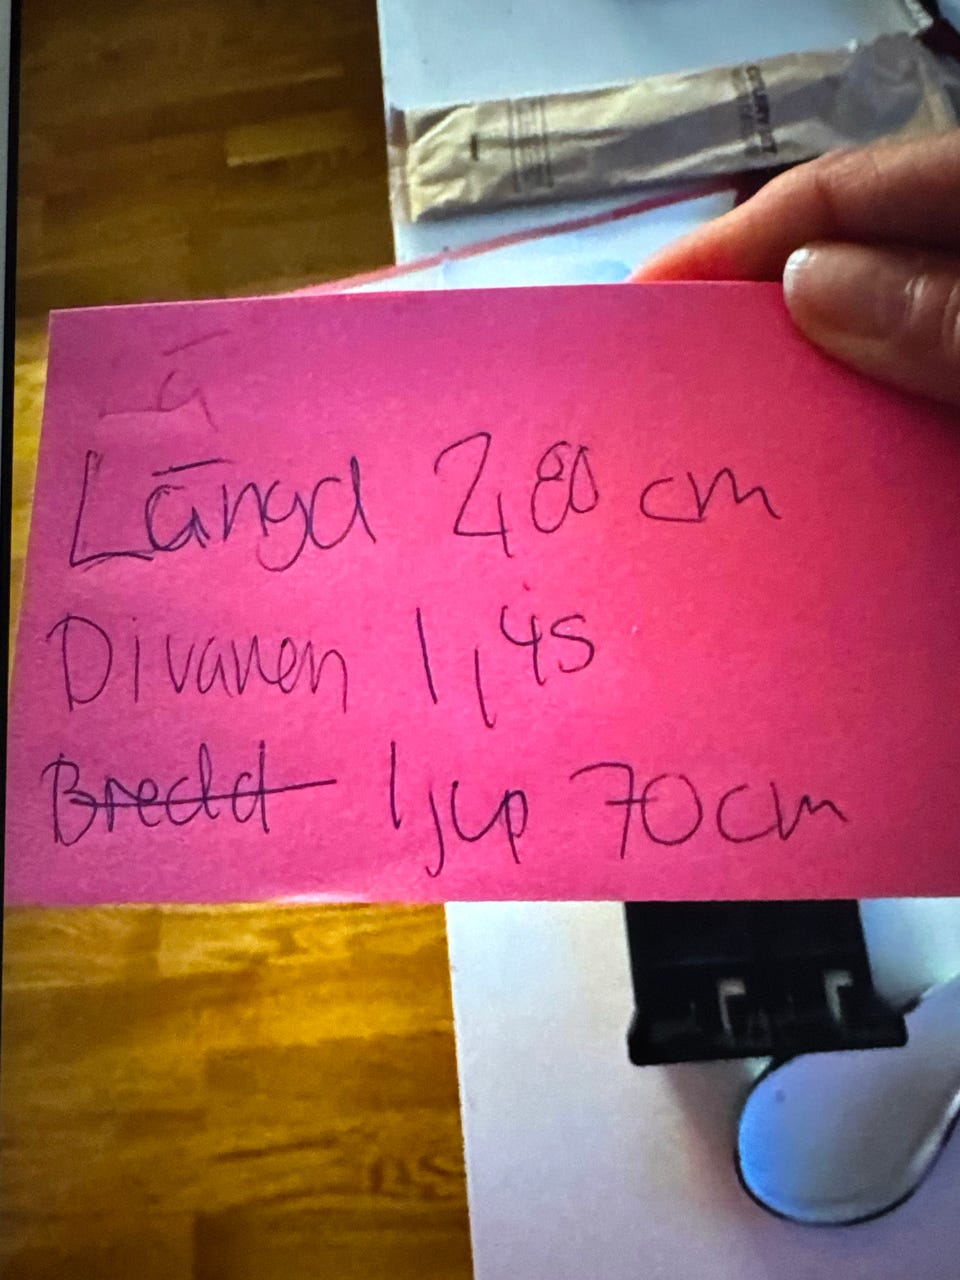 Lä
Längd 2,80 cm
Divanen 1,45
Bredd Djup 70cm